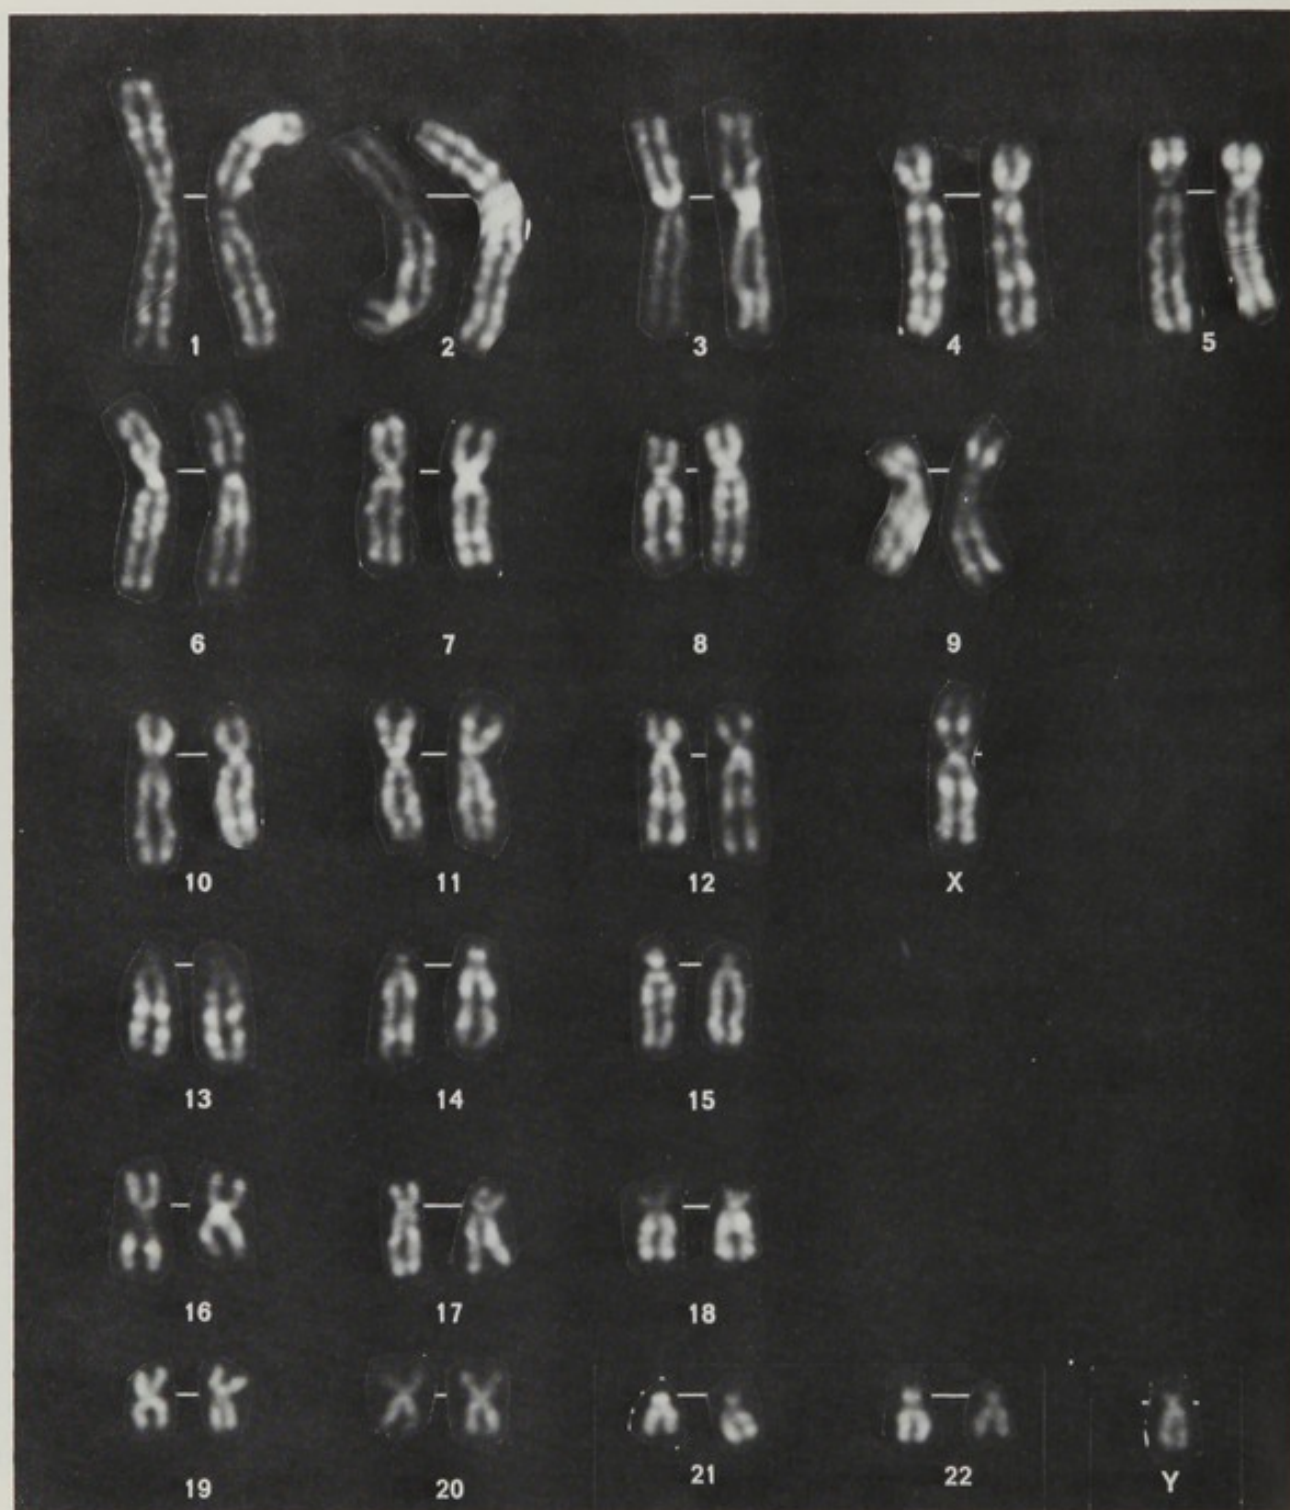 1 2 3 4 5
6 7 8 9
10 11 12 X
13 14 15
16 17 18
19 20 21 22 Y